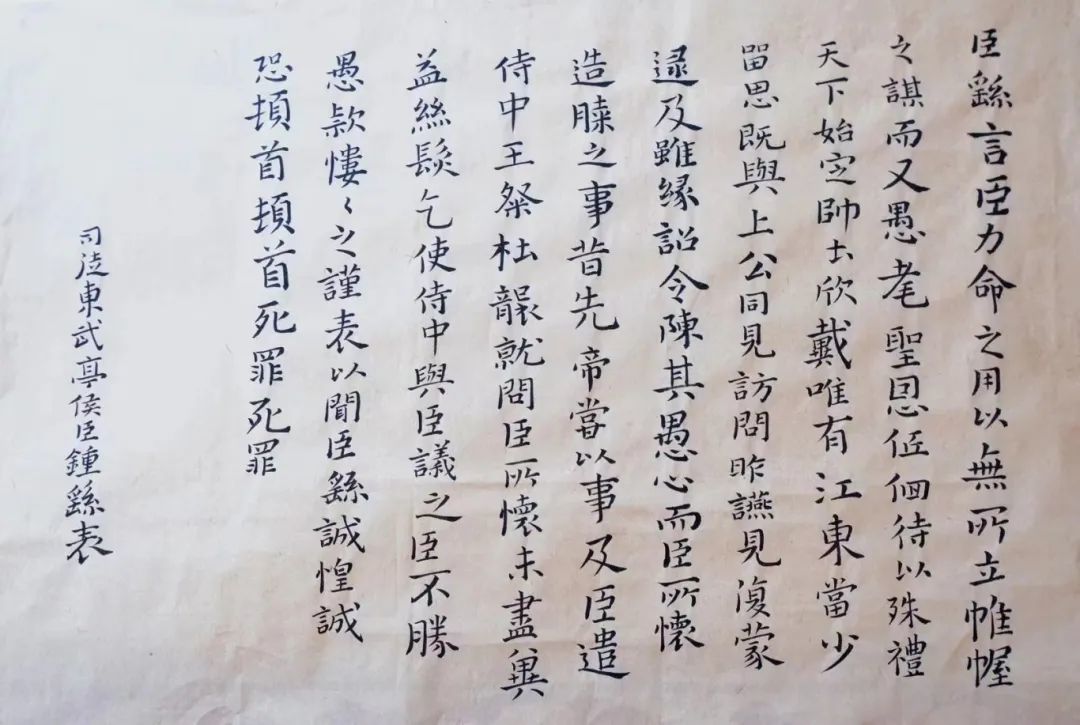 臣繇言臣力命之用以無所立帷幄
之謀而又愚耄聖恩低佪待以殊禮
天下始定帥士欣戴唯有江東當少
留思既與上公同見訪問昨讌見復蒙
逮及雖緣詔令陳其愚心而臣所懷
造膝之事昔先帝嘗以事及臣遣
侍中王粲杜襲就問臣所懷未盡冀
益絲髮乞使侍中與臣議之臣不勝
愚款慺〻之謹表以聞臣繇誠惶誠
恐頓首頓首死罪死罪
司徒東武亭侯臣鍾繇表